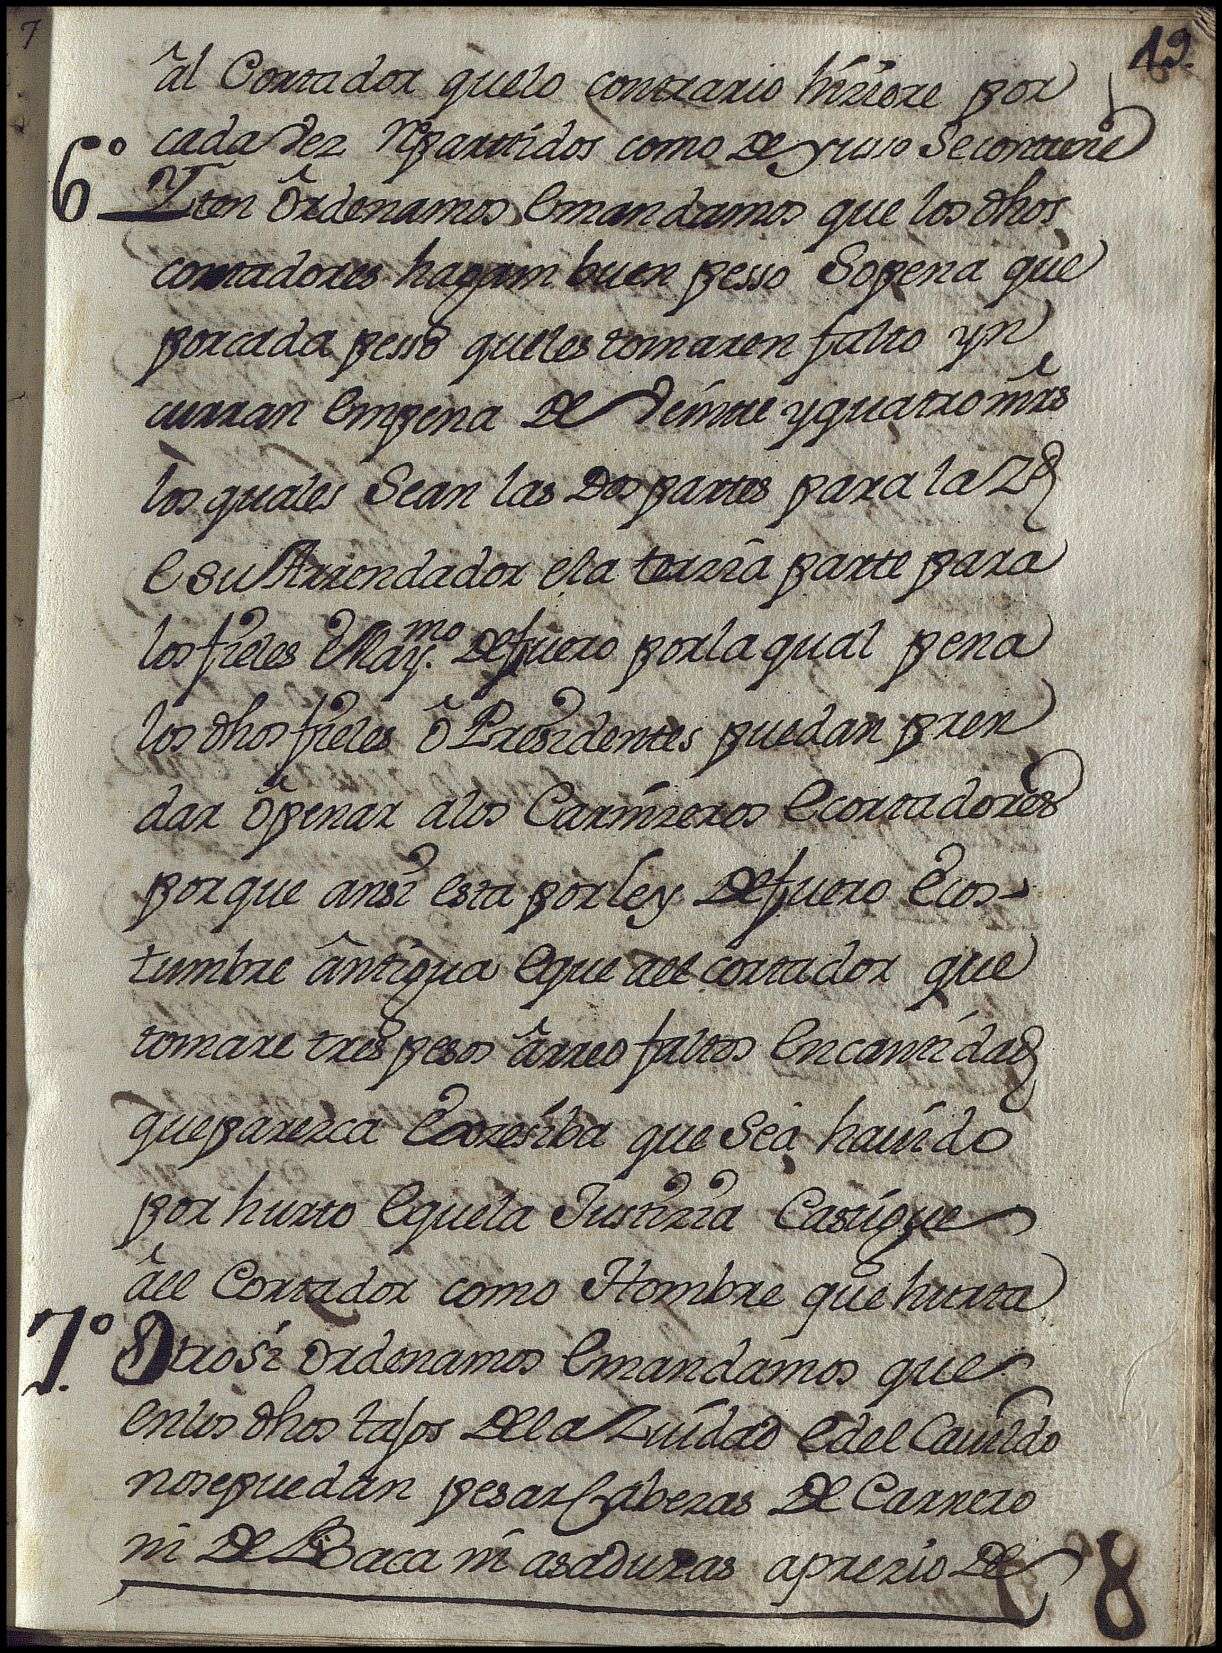 7
19.
âl Cortador quelo contrario hiziere por
cada vez Repartidos como De yuso Secontiene
6º Yten Ôrdenamos Emandamos que los dhos
cortadores hagan buen pesso Sopena que
porcada pesso queles tomaren falto yn
curran Enpena De Veinte yquatro mrs
los quales Sean las Dos partes para la Zd
E su Arrendador ela terzia parte para
los fieles E May.mo Defuero porla qual pena
los dhos fieles ô Presidentes puedan pren
dar ôpenar alos Carnizeros Ecortadores
porque ansi esta porley Defuero Ecos-
tumbre ântigua Eque âel cortador que
tomare tres pesos ârreo faltos Encantidad
queparezca que Sea havido
por hurto Equela Justizia Castigue
âel Cortador como Hombre que hurta
7º Otrosi Ordenamos Emandamos que
enlos dhos tajos Dela Zuidad Edel Cavildo
nosepuedan pesar Cabezas De Carnero
ni De Baca ni asaduras aprezio De
8